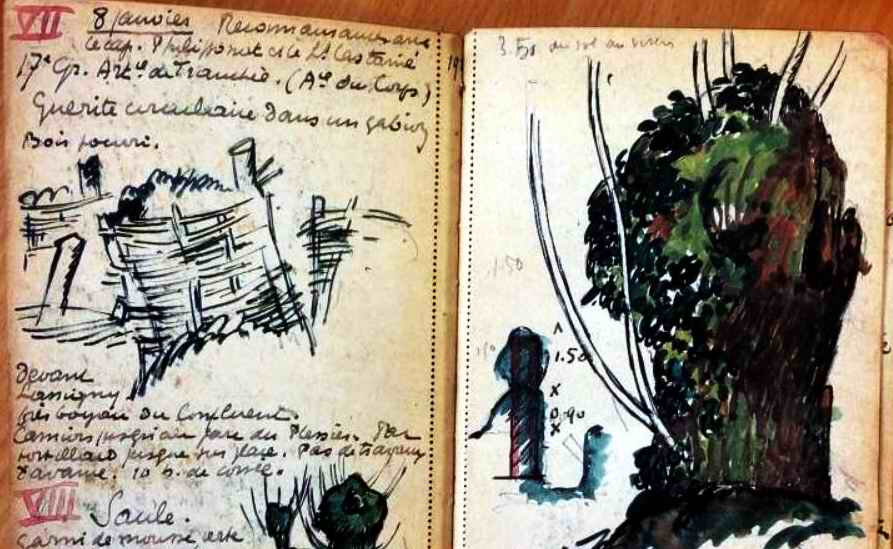 VII 8 janvier Reconnaissance avec
le cap. Philipponat et le Lt Castanié
17e Gr. Arte de Tranchée. (Ae du Corps)
Guérite circulaire dans un gabion
Bois pourri.
devant
Lassigny.
Près boyau du Confluent.
Camions jusqu'au parc du Plessier. Par
tortillard jusque sur place. Pas de travaux
10 h. de
VIII Saule.
garni de mousse verte
3.50 du sol au
1.50
1.50
0.90